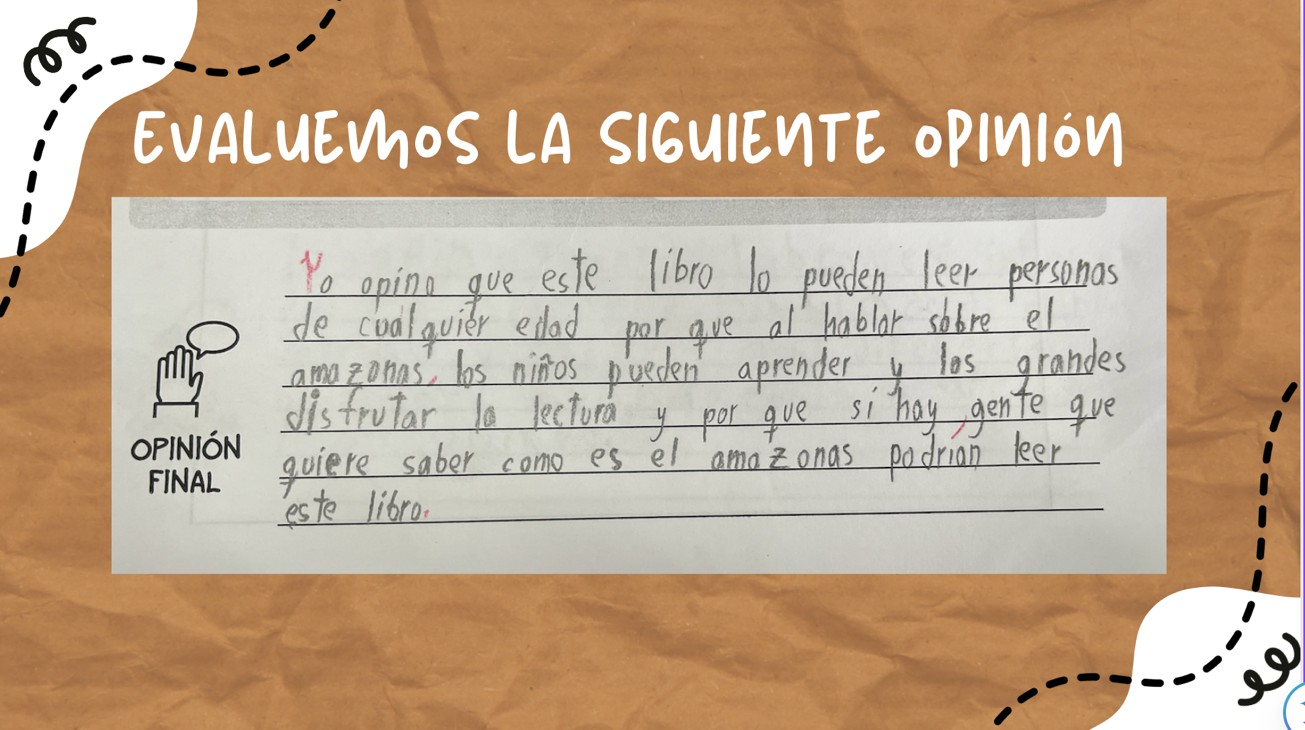 EVALUEMOS LA SIGUIENTE OPINIÓN
Yo opino que este libro lo pueden leer personas
de cualquier edad por que al hablar sobre el
amazonas, los niños pueden aprender y los grandes
disfrutar la lectura y por que si hay, gente que
quiere saber como es el amazonas podrían leer
este libro.
OPINIÓN
FINAL